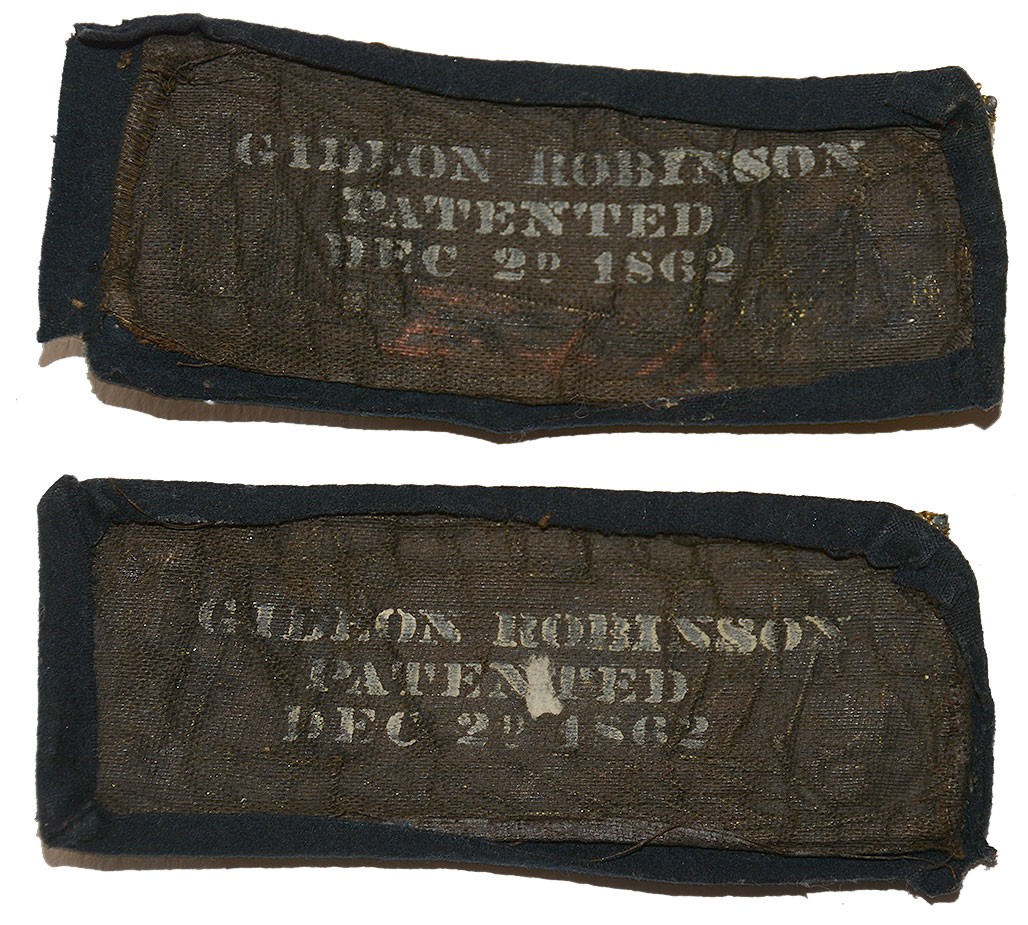 GIDEON ROBINSON
PATENTED
DEC 2D 1862
GIDEON ROBINSON
PATENTED
DEC 2D 1862